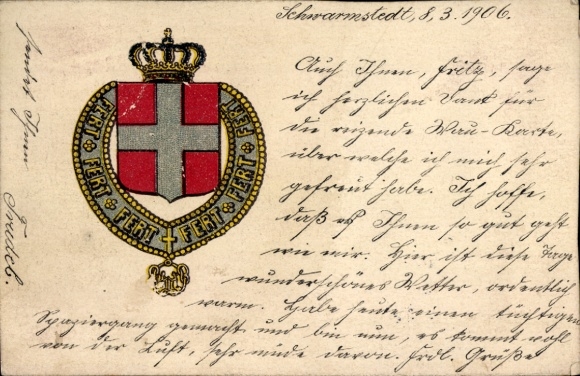 Schwarmstedt, 8.3.1906.
Auch Ihnen, Fritz, sage
ich herzlichen Dank für
die reizende Wau-Karte,
über welche ich mich sehr
gefreut habe. Ich hoffe,
daß es Ihnen so gut geht
wie mir. Hier ist diese Tage
wunderschönes Wetter, ordentlich
warm. Habe heute einen tüchtigen
Spaziergang gemacht und bin nun, es kommt wohl
von der Luft, sehr müde davon. Frdl. Grüße
FERT FERT FERT FERT FERT FERT